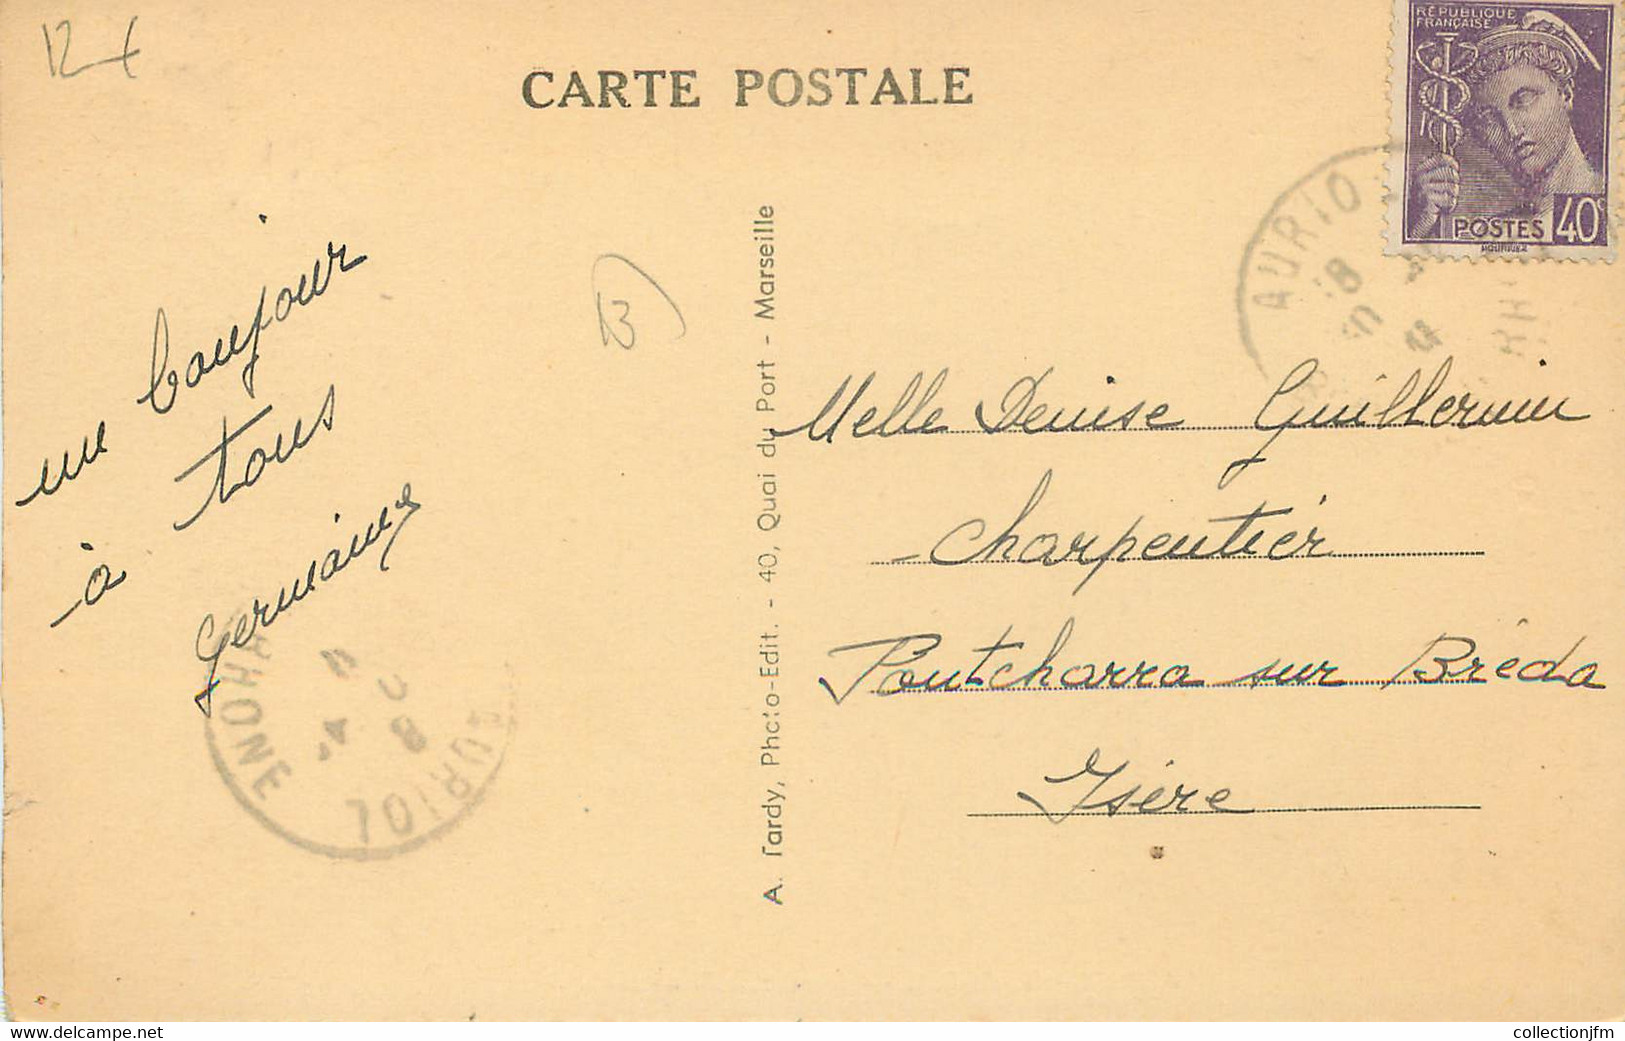 CARTE POSTALE
RÉPUBLIQUE
FRANÇAISE
POSTES 40c
AURIOL
un bonjour
à tous
Germaine
RHONE
AURIOL
A. Tardy, Photo-Edit. - 40, Quai du Port - Marseille
Melle Denise Guillermin
Charpentier
Pontcharra sur Bréda
Isère
www.delcampe.net
collectionjfm